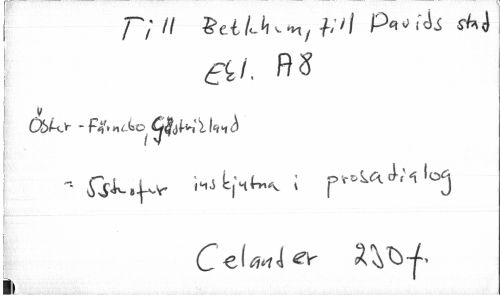 Till Betlehem, till Davids stad
Ekl. A8
Öster-Färnebo, Gästrikland
- 5 strofer inskjutna i prosadialog
Celander 230f.